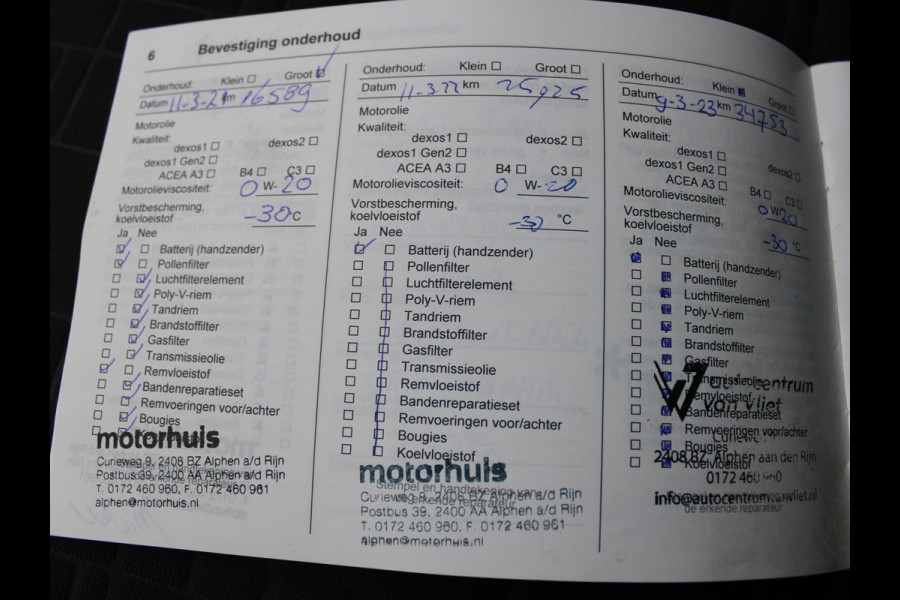 6 Bevestiging onderhoud
Onderhoud: Klein Groot
Datum 11-3-21 km 16589
Motorolie
Kwaliteit:
dexos1 dexos2
dexos1 Gen2
ACEA A3 B4 C3
Motorolieviscositeit: 0 W- 20
Vorstbescherming,
koelvloeistof -30 °C
Ja Nee
Batterij (handzender)
Pollenfilter
Luchtfilterelement
Poly-V-riem
Tandriem
Brandstoffilter
Gasfilter
Transmissieolie
Remvloeistof
Bandenreparatieset
Remvoeringen voor/achter
Bougies
motorhuis
Curieweg 9, 2408 BZ Alphen a/d Rijn
Postbus 39, 2400 AA Alphen a/d Rijn
T. 0172 460 960, F. 0172 460 961
alphen@motorhuis.nl
Onderhoud: Klein Groot
Datum 11-3-22 km 25925
Motorolie
Kwaliteit:
dexos1 dexos2
dexos1 Gen2
ACEA A3 B4 C3
Motorolieviscositeit: 0 W- 20
Vorstbescherming,
koelvloeistof -30 °C
Ja Nee
Batterij (handzender)
Pollenfilter
Luchtfilterelement
Poly-V-riem
Tandriem
Brandstoffilter
Gasfilter
Transmissieolie
Remvloeistof
Bandenreparatieset
Remvoeringen voor/achter
Bougies
Koelvloeistof
motorhuis
Stempel en handtekening van
de erkende reparateur
Curieweg 9, 2408 BZ Alphen a/d Rijn
Postbus 39, 2400 AA Alphen a/d Rijn
T. 0172 460 960, F. 0172 460 961
alphen@motorhuis.nl
Onderhoud: Klein Groot
Datum 9-3-23 km 34753
Motorolie
Kwaliteit:
dexos1 dexos2
dexos1 Gen2
ACEA A3 B4 C3
Motorolieviscositeit: 0 W 20
Vorstbescherming,
koelvloeistof -30 °C
Ja Nee
Batterij (handzender)
Pollenfilter
Luchtfilterelement
Poly-V-riem
Tandriem
Brandstoffilter
Gasfilter
Transmissieolie
Remvloeistof
Bandenreparatieset
Remvoeringen voor/achter
Bougies
Koelvloeistof
autocentrum
van vliet
2408 BZ Alphen aan den Rijn
0172 460
info@autocentrumvanvliet.nl
de erkende reparateur